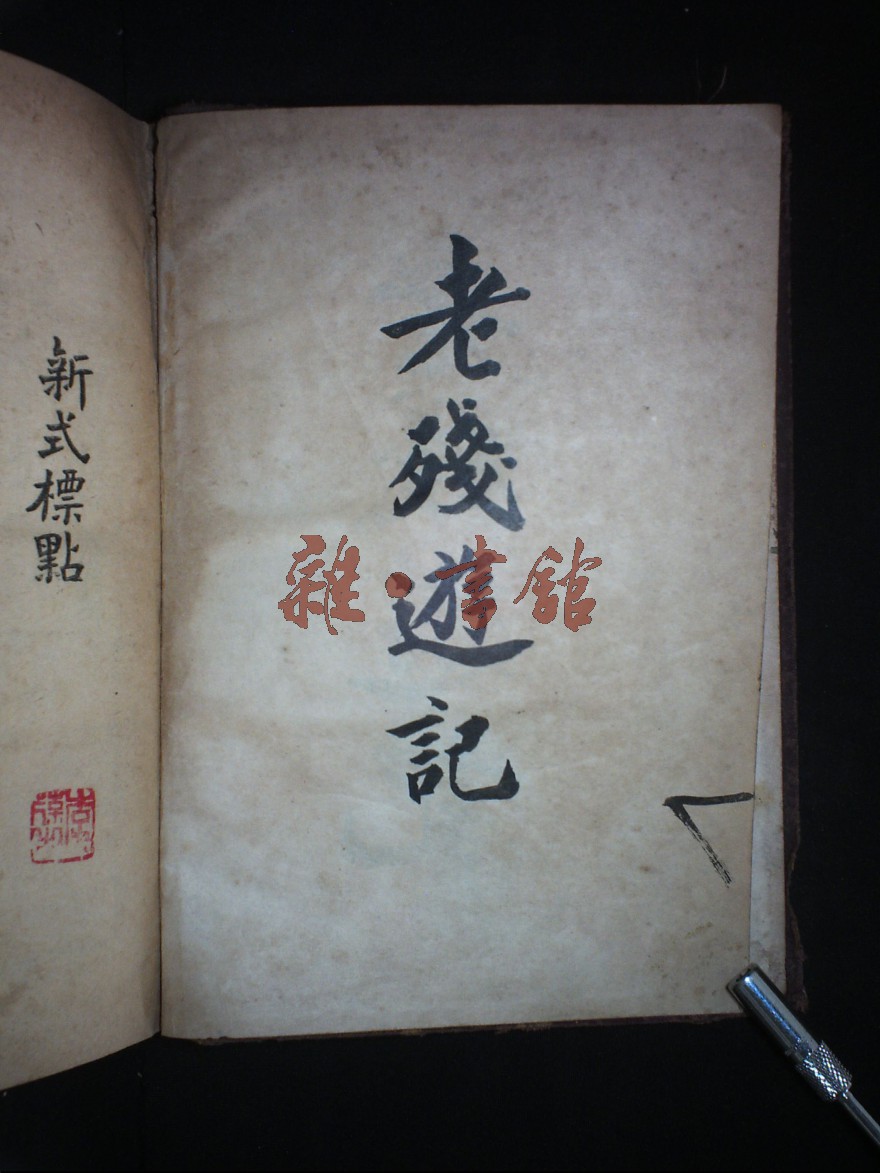 老殘遊記
雜·書館
新式標點